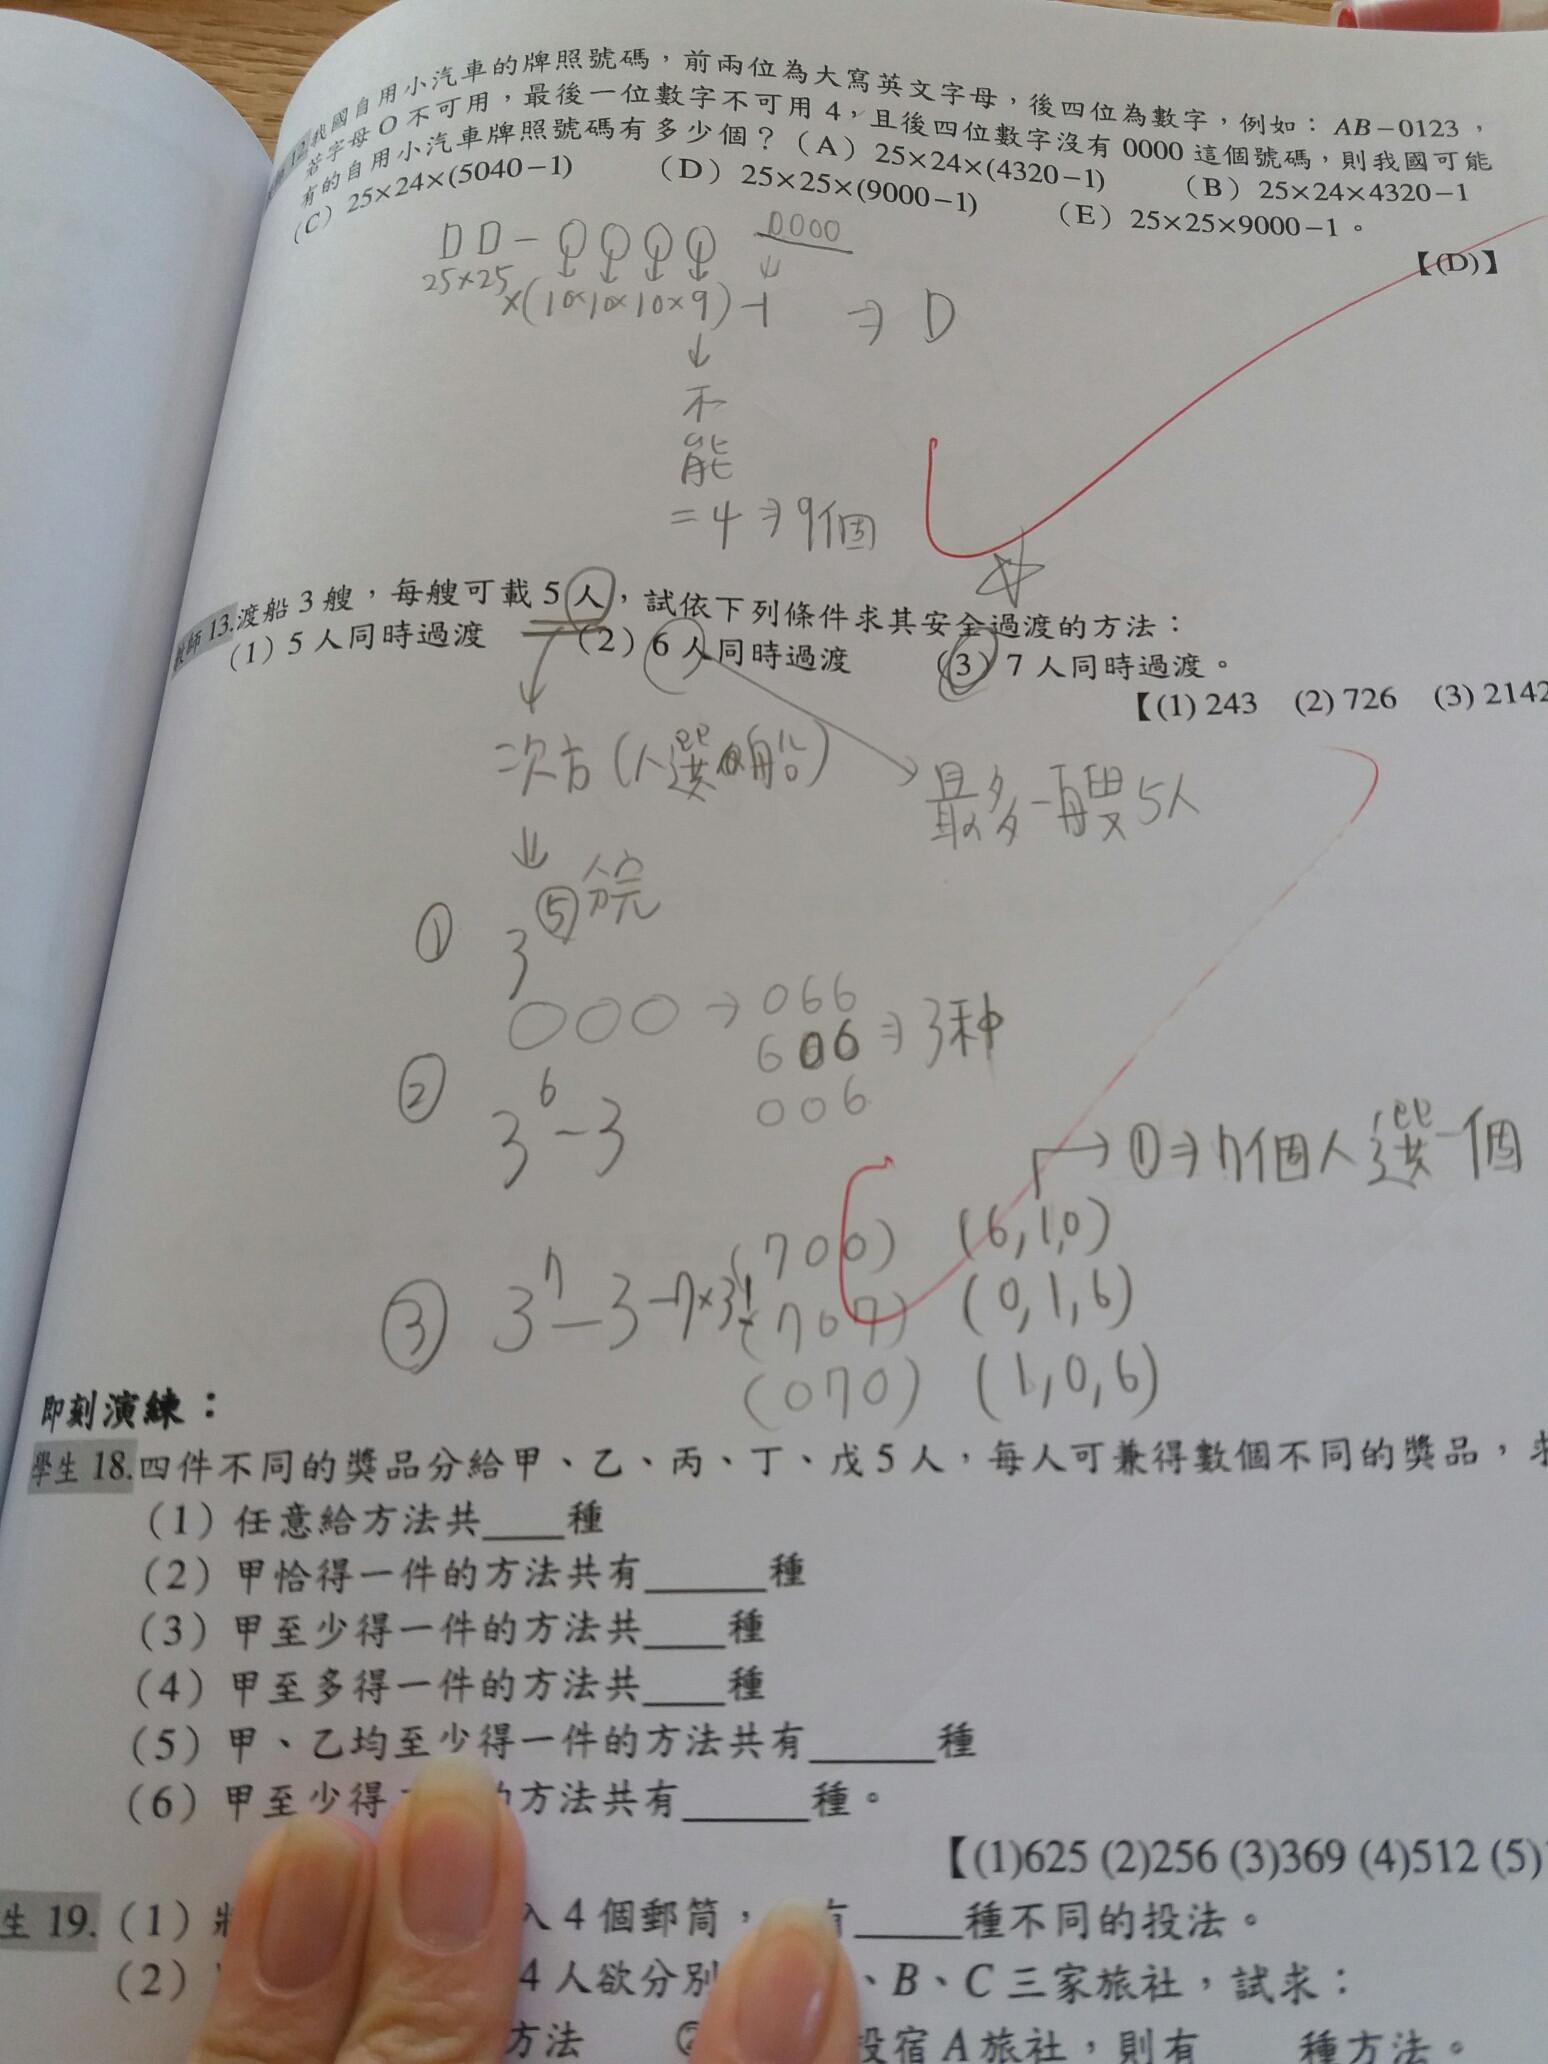 12.我國自用小汽車的牌照號碼，前兩位為大寫英文字母，後四位為數字，例如：AB－0123，
若字母O不可用，最後一位數字不可用4，且後四位數字沒有0000這個號碼，則我國可能
有的自用小汽車牌照號碼有多少個？（A）25×24×(4320－1)　（B）25×24×4320－1
（C）25×24×(5040－1)　（D）25×25×(9000－1)　（E）25×25×9000－1。
【(D)】
0000
25×25
×(10×10×10×9)－1 ⇒ D
不
能
=4⇒9個
教師 13.渡船3艘，每艘可載5人，試依下列條件求其安全過渡的方法：
(1) 5人同時過渡　(2) 6人同時過渡　(3) 7人同時過渡。
【(1) 243　(2) 726　(3) 2142
次方(人選船)
最多一艘5人
⑤分完
① 3
000→066
606⇒3种
006
② 3^6－3
①⇒7個人選一個
③ 3^7－3－7×3!
(700) (6,1,0)
(707) (0,1,6)
(070) (1,0,6)
即刻演練：
學生 18.四件不同的獎品分給甲、乙、丙、丁、戊5人，每人可兼得數個不同的獎品，求
（1）任意給方法共____種
（2）甲恰得一件的方法共有______種
（3）甲至少得一件的方法共____種
（4）甲至多得一件的方法共____種
（5）甲、乙均至少得一件的方法共有______種
（6）甲至少得 方法共有______種。
【(1)625 (2)256 (3)369 (4)512 (5)
生 19.（1） 入4個郵筒， 有_____種不同的投法。
（2） 4人欲分別 、B、C三家旅社，試求：
方法 ② 投宿A旅社，則有____種方法。